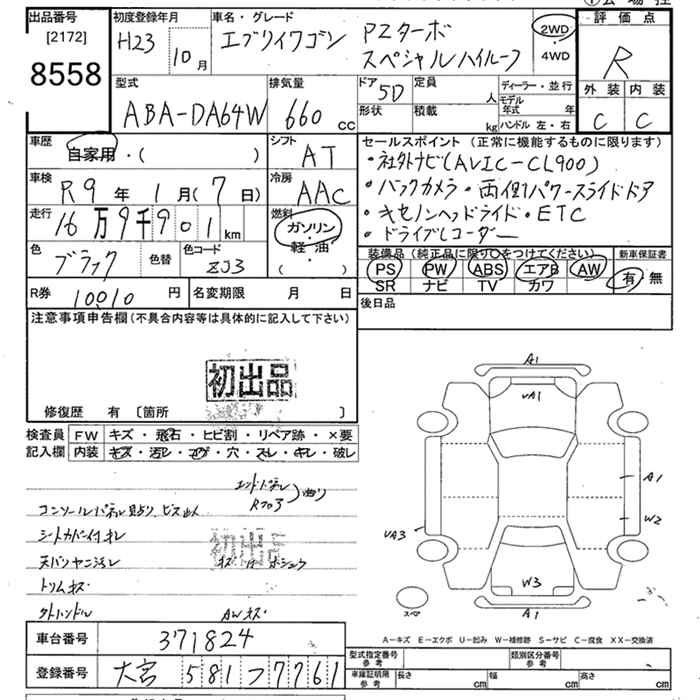 出品番号
[2172]
8558
初度登録年月
H23 10月
車名・グレード
エブリイワゴン PZターボ
スペシャルハイルーフ
2WD
・
4WD
評価点
R
外装 内装
C C
型式
ABA-DA64W
排気量
660 cc
ドア 5D
定員 人
形状
積載 kg
ディーラー・並行
モデル年式 年
ハンドル 左・右
車歴
自家用・( )
シフト
AT
車検
R9年 1月(7日)
冷房
AAC
走行
16万9千901km
燃料
ガソリン
・
軽油
( )
色
ブラック
色替
色コード
ZJ3
R券 10010円
名変期限 月 日
セールスポイント(正常に機能するものに限ります)
・社外ナビ(AVIC-CL900)
・バックカメラ・両側パワースライドドア
・キセノンヘッドライト・ETC
・ドライブレコーダー
装備品(純正品に限り○をつけてください)
PS PW ABS エアB AW
SR ナビ TV カワ
新車保証書
有・無
後日品
注意事項申告欄(不具合内容等は具体的に記入して下さい)
初出品
修復歴 有 〔箇所 〕
検査員記入欄
FW キズ・飛石・ヒビ割・リペア跡・×要
内装 キズ・汚レ・コゲ・穴・スレ・キレ・破レ
エンドパネル
Rフロア
曲り
コンソールパネル貼り、ビス止め
シートカバー付 キレ
天バリヤニ汚レ
トリムキズ
AWキズ
A1
UA1
A1
W2
UA3
W3
A1
スペア
A-キズ E-エクボ U-凹み W-補修跡 S-サビ C-腐食 XX-交換済
車台番号 371824
登録番号 大宮 581 フ 7761
型式指定番号 参考
類別区分番号 参考
車庫証明用 参考
長さ cm 幅 cm 高さ cm